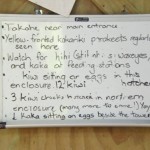 Takahe near main entrance
Yellow-fronted kakariki
seen here
Watch for hihi
and kaka at feeding stations
kiwi sitting on eggs in this
enclosure. 12 kiwi
3 kiwi chicks in northern
enclosure (many more to come!)
2 Kaka sitting on eggs beside the tower